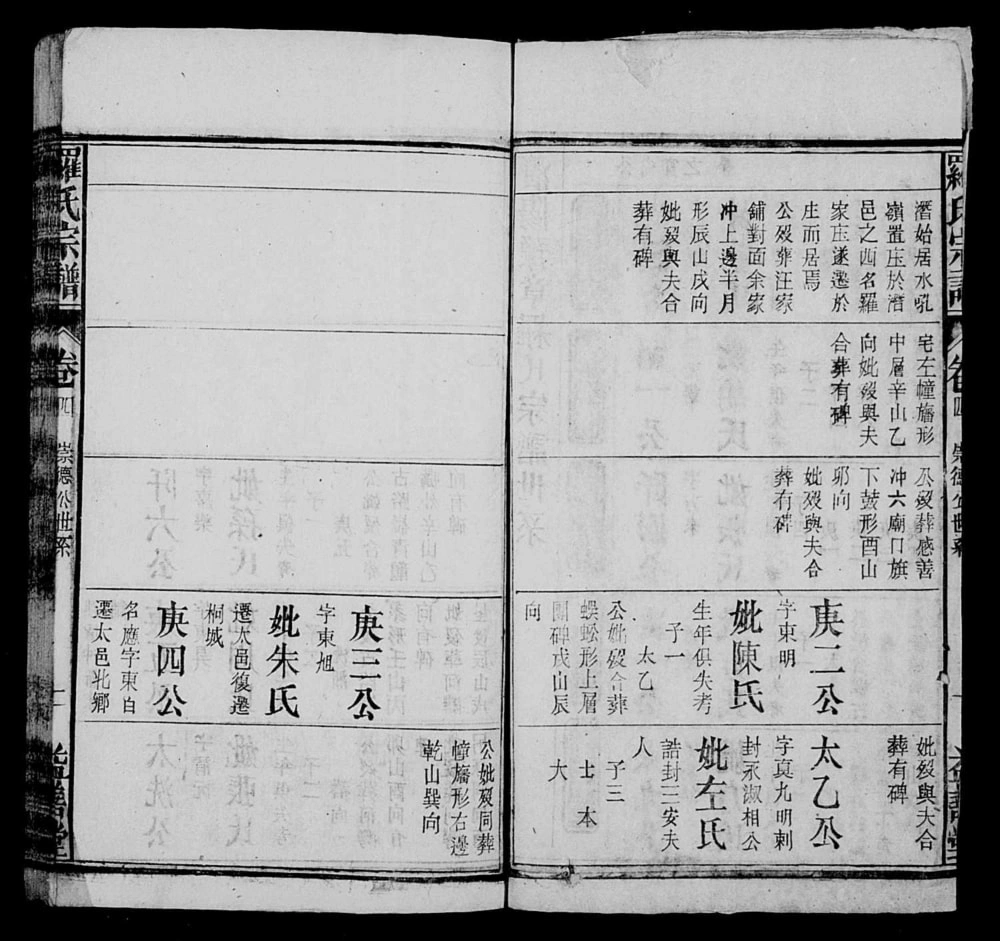 羅氏宗譜
卷四
崇德公世系
潛始居水吼
嶺置庄於潛
邑之西名羅
家庄遂遷於
庄而居焉
公歿葬汪家
鋪對面余家
冲上邊半月
形辰山戌向
妣歿與夫合
葬有碑
宅左幢旛形
中層辛山乙
向妣歿與夫
合葬有碑
公歿葬感善
冲六廟口旗
下鼓形酉山
卯向
妣歿與夫合
葬有碑
庚二公
字東明
妣陳氏
生年俱失考
子一
太乙
公妣歿合葬
蜈蚣形上層
團碑戌山辰
向
妣歿與夫合
葬有碑
太乙公
字真九明剌
封永淑相公
妣左氏
誥封三安夫
人
子三
士本
大
庚三公
字東旭
妣朱氏
遷太邑復遷
桐城
庚四公
名應字東白
遷太邑北鄉
公妣歿同葬
幢旛形右邊
乾山巽向
羅氏宗譜
卷四
崇德公世系